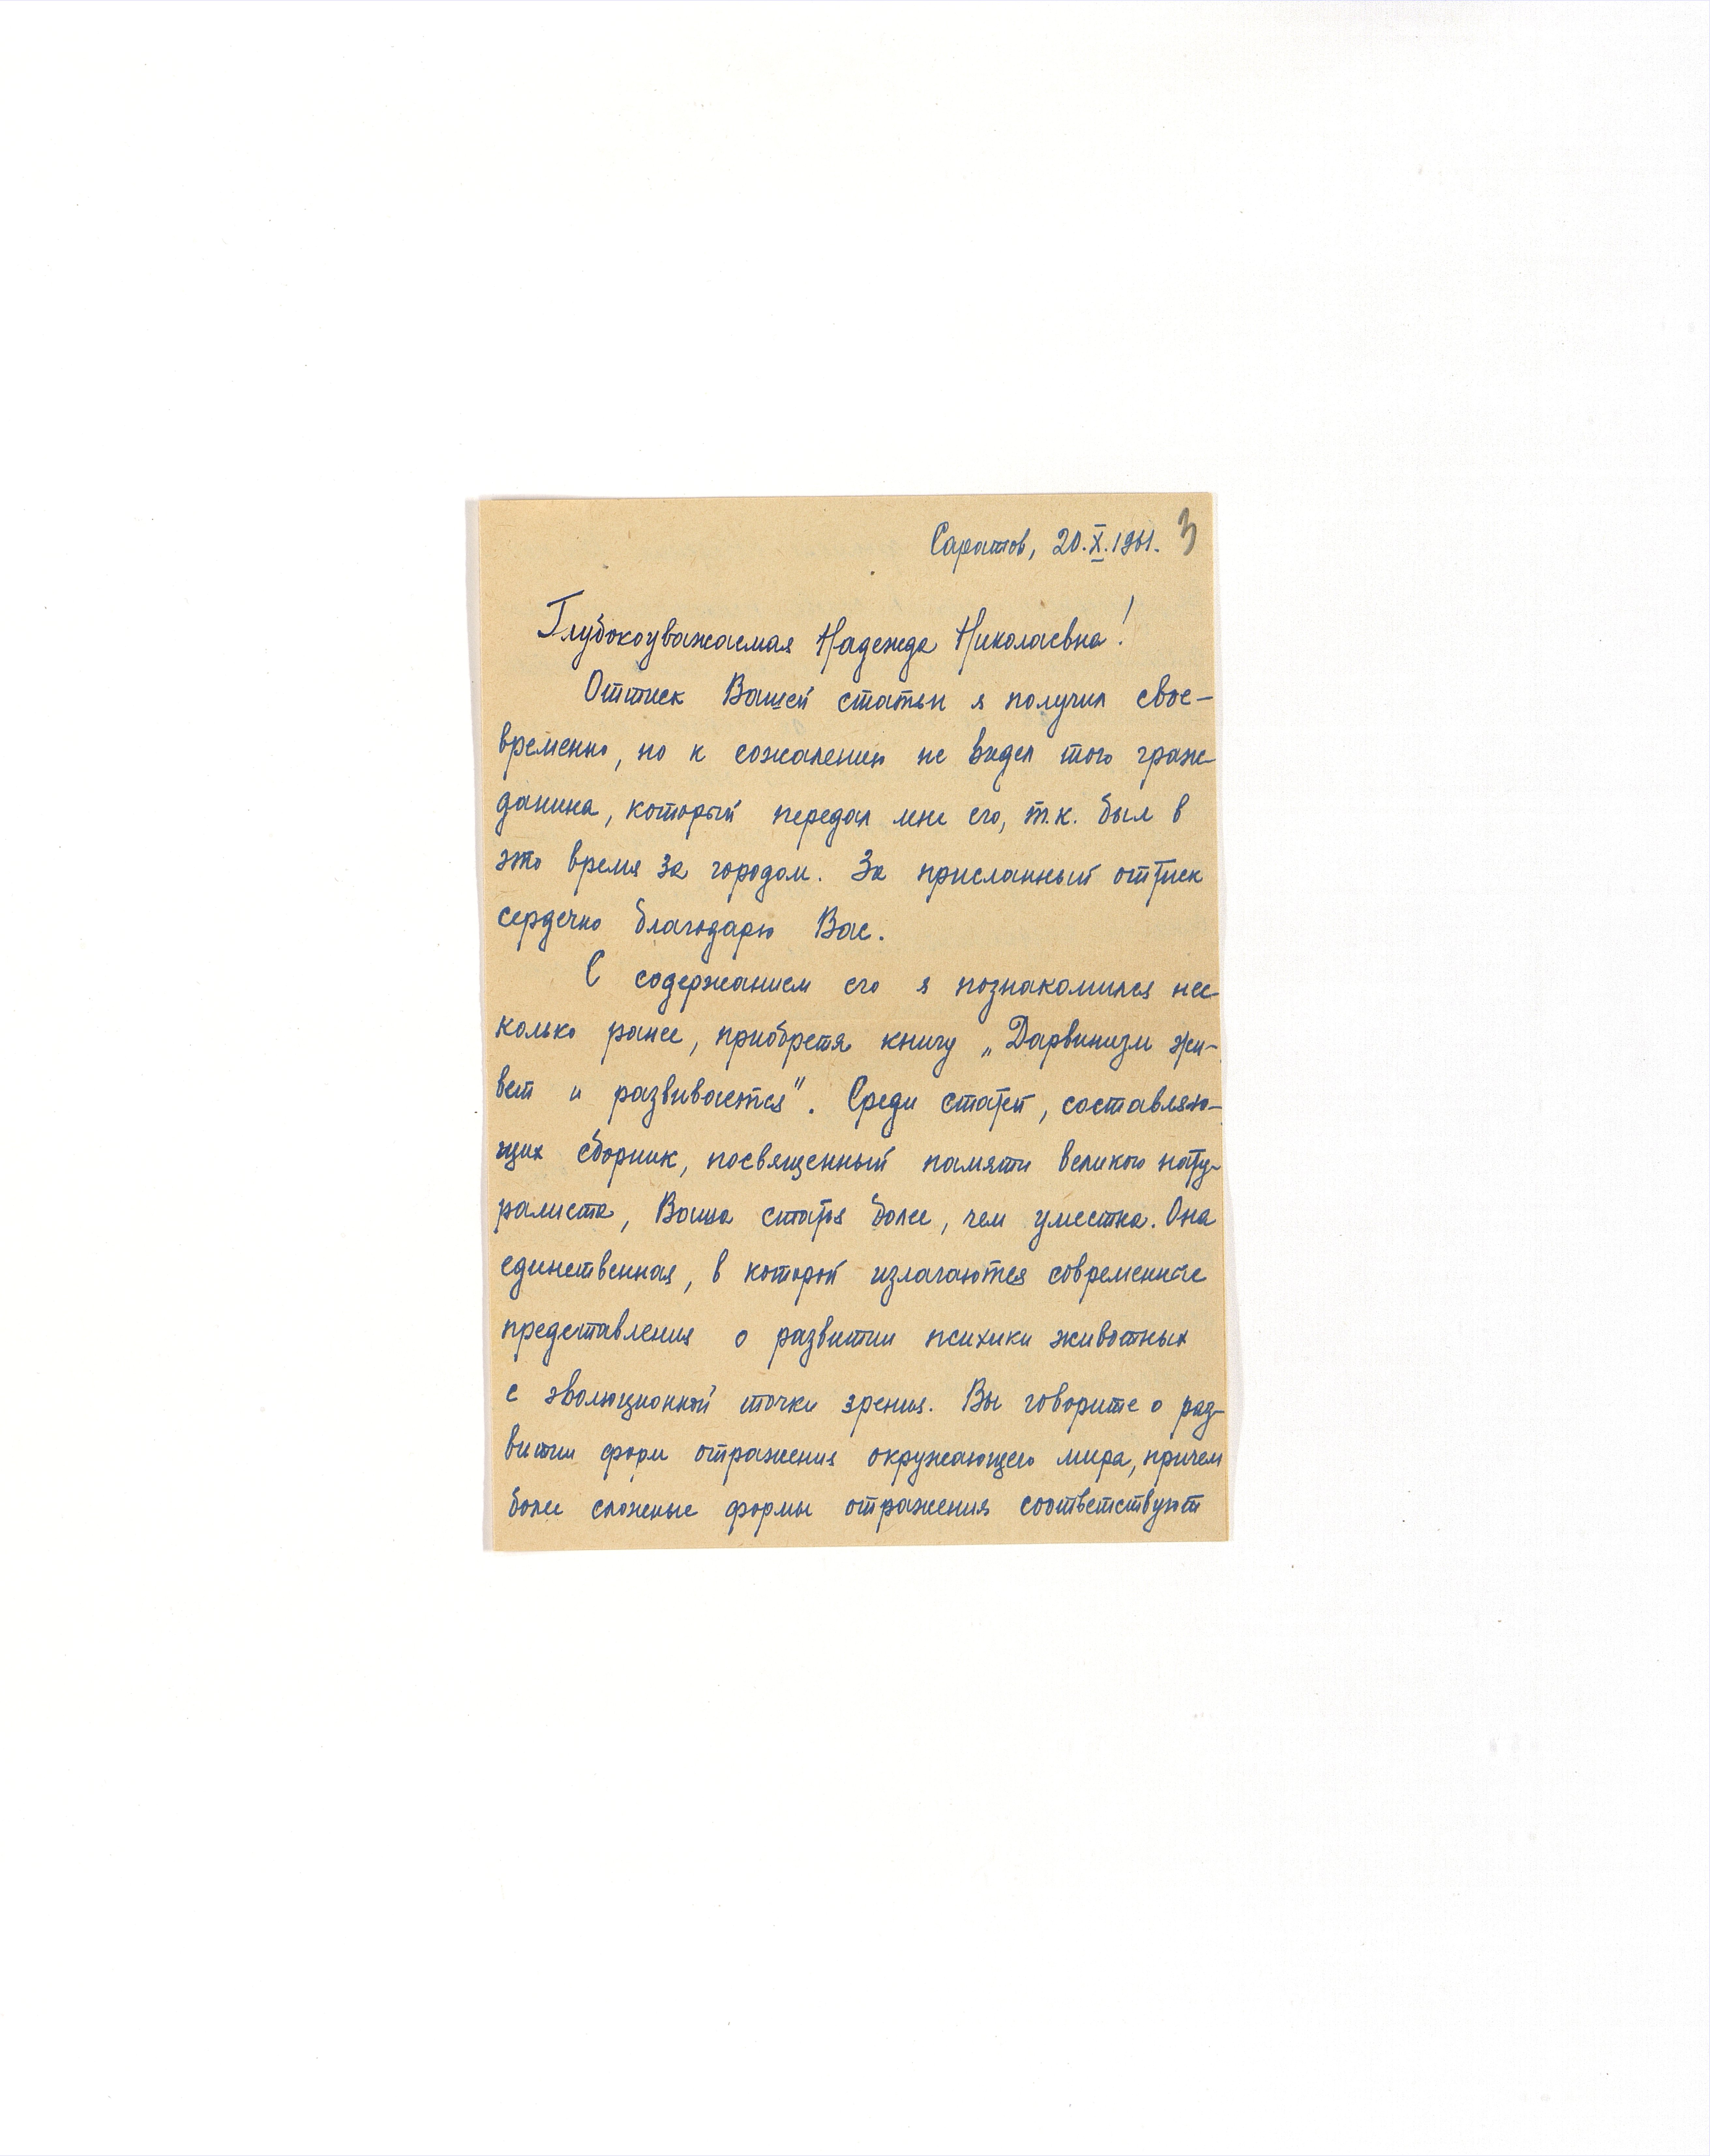 Саратов, 20.X.1961. 3
Глубокоуважаемая Надежда Николаевна!
Оттиск Вашей статьи я получил свое-
временно, но к сожалению не видел того граж-
данина, который передал мне его, т.к. был в
это время за городом. За присланный оттиск
сердечно благодарю Вас.
С содержанием его я познакомился нес-
колько ранее, приобретя книгу „Дарвинизм жи-
вет и развивается". Среди статей, составляю-
щих сборник, посвященный памяти великого нату-
ралиста, Ваша статья более, чем уместна. Она
единственная, в которой излагаются современные
представления о развитии психики животных
с эволюционной точки зрения. Вы говорите о раз-
витии форм отражения окружающего мира, причем
более сложные формы отражения соответствуют